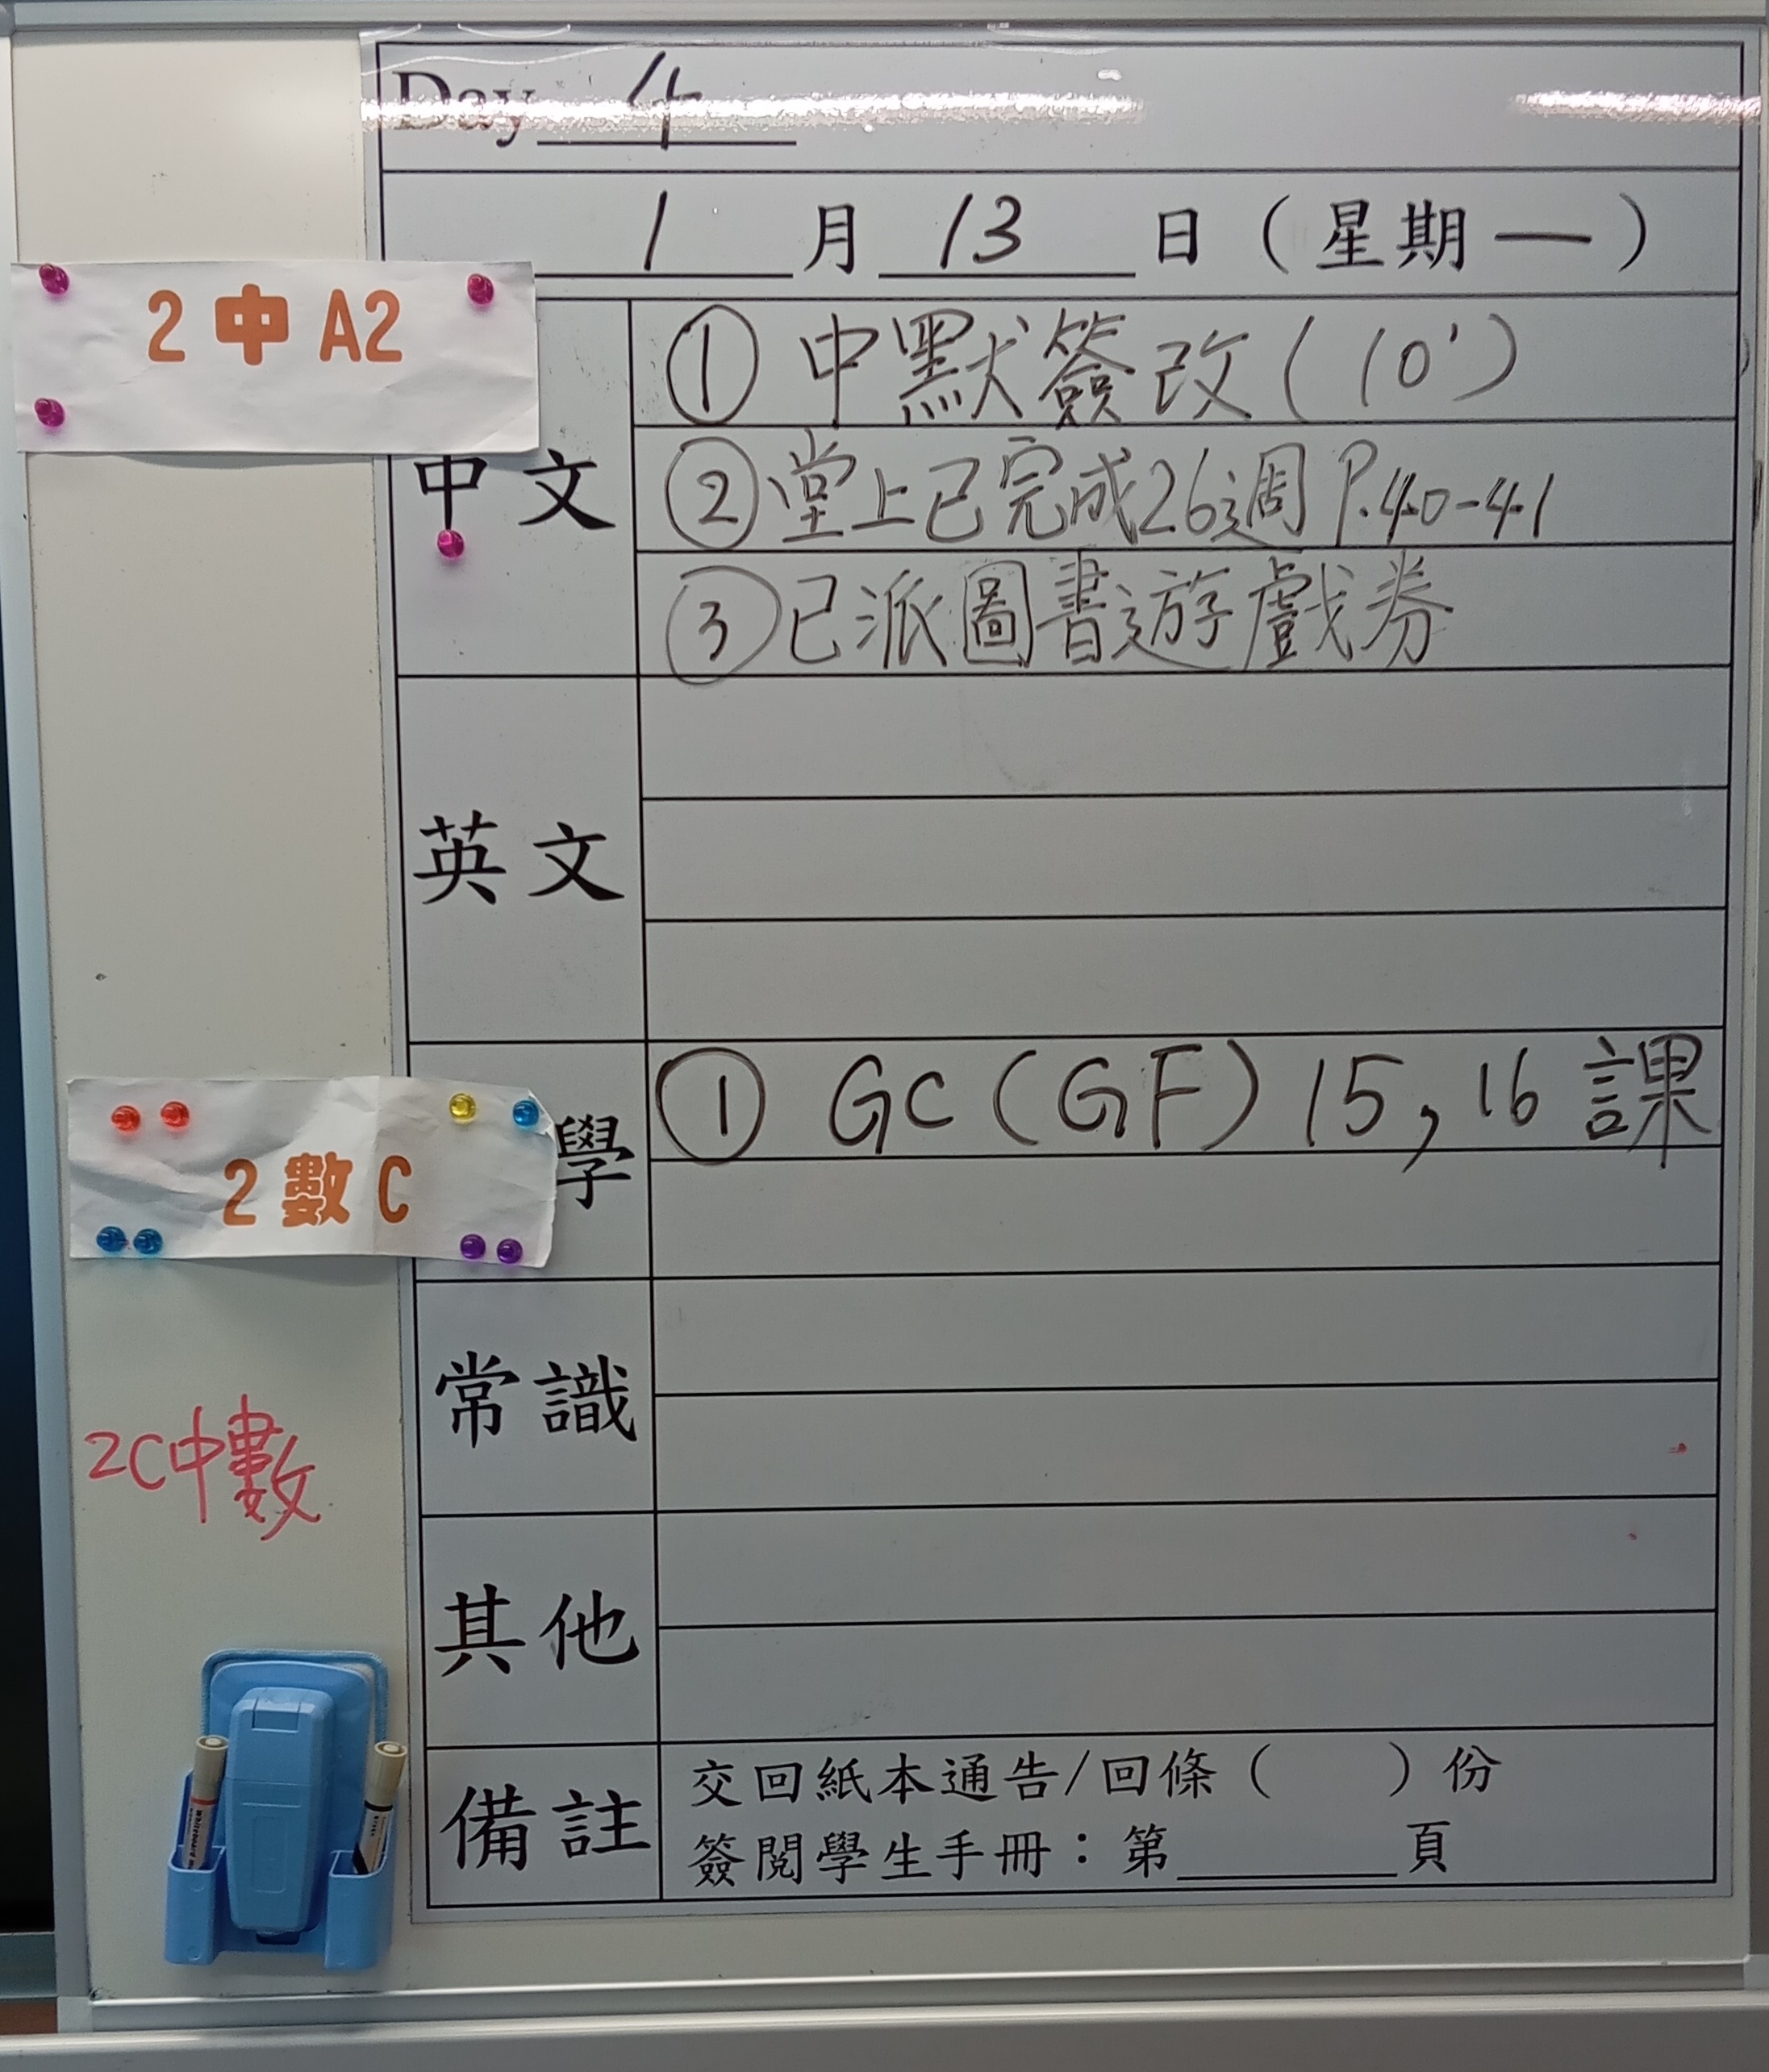 Day 4
1 月 13 日 ( 星期 一 )
2 中 A2
中文
① 中默簽改 ( 10' )
② 堂上已完成26週 P.40-41
③ 已派圖書遊戲券
英文
2 數 C
學
① GC ( GF ) 15, 16 課
常識
2C中數
其他
備註
交回紙本通告/回條 (      ) 份
簽閱學生手冊：第________頁